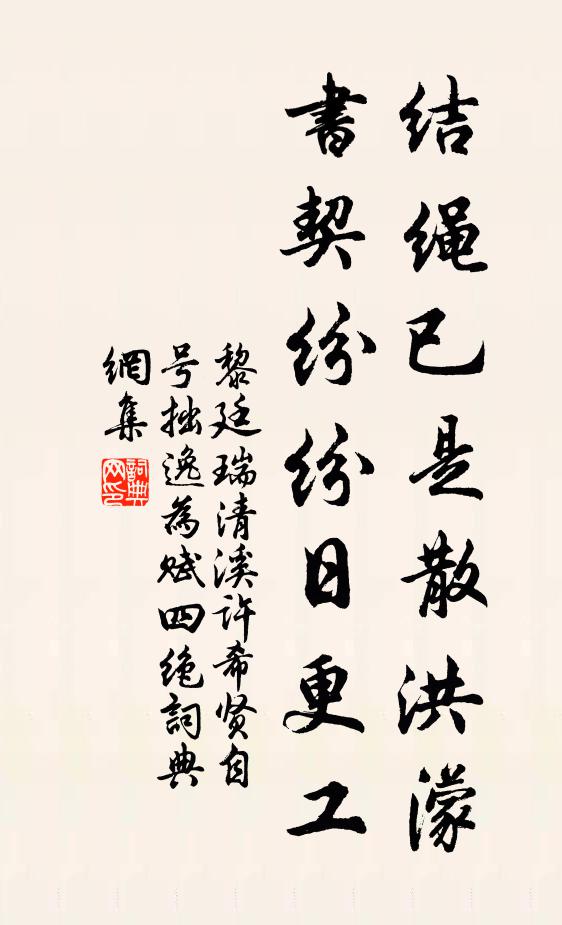 结绳已是散洪濛
書契纷纷日更工
黎廷瑞清溪许希贤自
号拙逸為赋四绝詞典
網集
詞典
网印